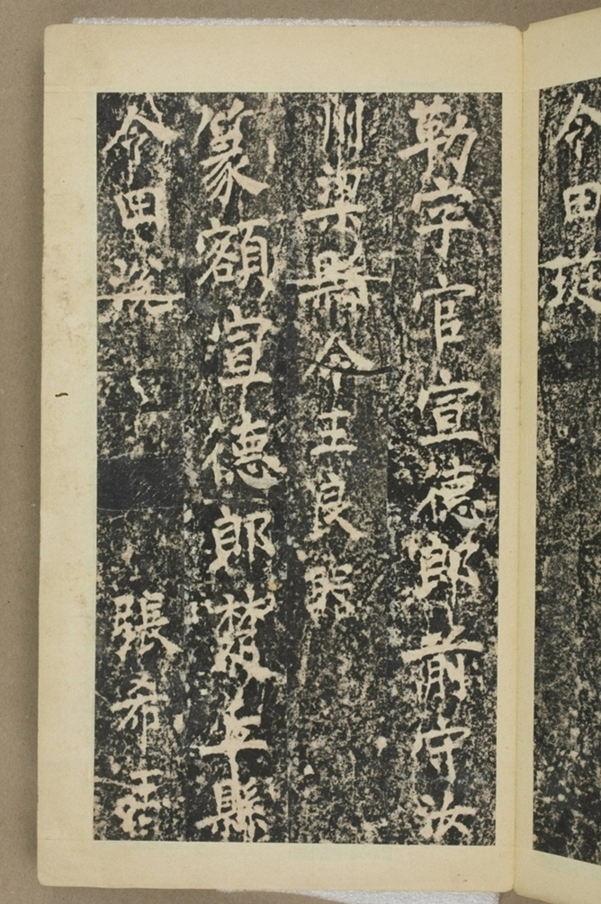 令田
勒字官宣德郎前守汝
州梁縣令王良器
篆額宣德郎楚丘縣
令田
張希